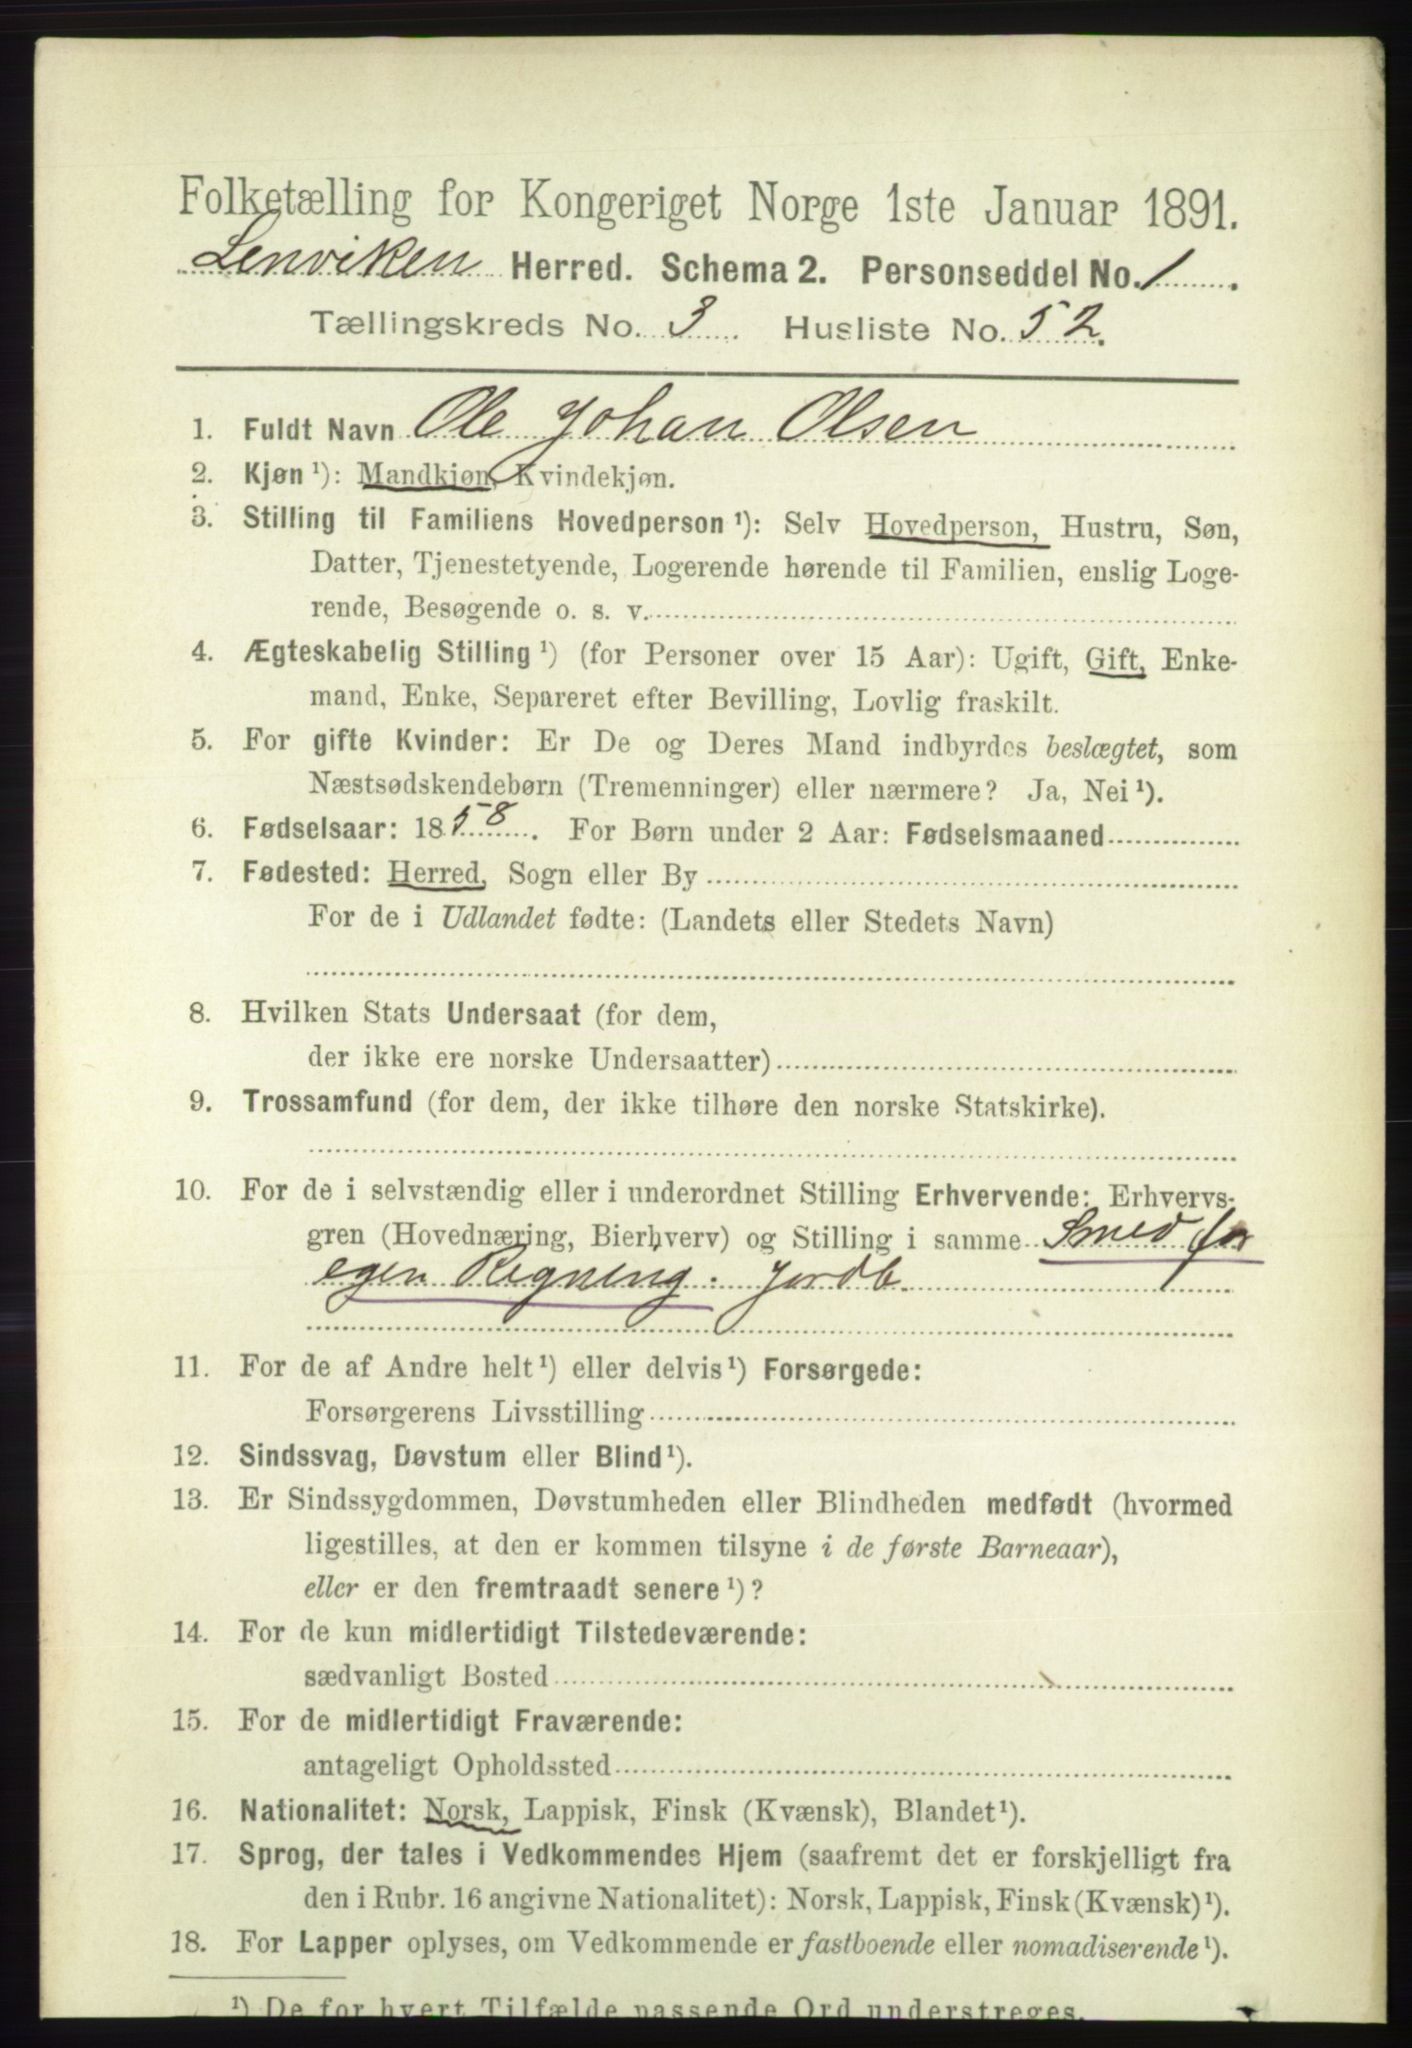 Folketælling for Kongeriget Norge 1ste Januar 1891.
Lenviken Herred. Schema 2. Personseddel No. 1.
Tællingskreds No. 3. Husliste No. 52.
1. Fuldt Navn Ole Johan Olsen
2. Kjøn ¹): Mandkjøn, Kvindekjøn.
3. Stilling til Familiens Hovedperson ¹): Selv Hovedperson, Hustru, Søn,
Datter, Tjenestetyende, Logerende hørende til Familien, enslig Loge-
rende, Besøgende o. s. v.
4. Ægteskabelig Stilling ¹) (for Personer over 15 Aar): Ugift, Gift, Enke-
mand, Enke, Separeret efter Bevilling, Lovlig fraskilt.
5. For gifte Kvinder: Er De og Deres Mand indbyrdes beslægtet, som
Næstsødskendebørn (Tremenninger) eller nærmere? Ja, Nei ¹).
6. Fødselsaar: 1858. For Børn under 2 Aar: Fødselsmaaned
7. Fødested: Herred, Sogn eller By
For de i Udlandet fødte: (Landets eller Stedets Navn)
8. Hvilken Stats Undersaat (for dem,
der ikke ere norske Undersaatter)
9. Trossamfund (for dem, der ikke tilhøre den norske Statskirke).
10. For de i selvstændig eller i underordnet Stilling Erhvervende: Erhvervs-
gren (Hovednæring, Bierhverv) og Stilling i samme Smed for
egen Regning. Jordb.
11. For de af Andre helt ¹) eller delvis ¹) Forsørgede:
Forsørgerens Livsstilling
12. Sindssvag, Døvstum eller Blind ¹).
13. Er Sindssygdommen, Døvstumheden eller Blindheden medfødt (hvormed
ligestilles, at den er kommen tilsyne i de første Barneaar),
eller er den fremtraadt senere ¹)?
14. For de kun midlertidigt Tilstedeværende:
sædvanligt Bosted
15. For de midlertidigt Fraværende:
antageligt Opholdssted
16. Nationalitet: Norsk, Lappisk, Finsk (Kvænsk), Blandet ¹).
17. Sprog, der tales i Vedkommendes Hjem (saafremt det er forskjelligt fra
den i Rubr. 16 angivne Nationalitet): Norsk, Lappisk, Finsk (Kvænsk) ¹).
18. For Lapper oplyses, om Vedkommende er fastboende eller nomadiserende ¹).
¹) De for hvert Tilfælde passende Ord understreges.